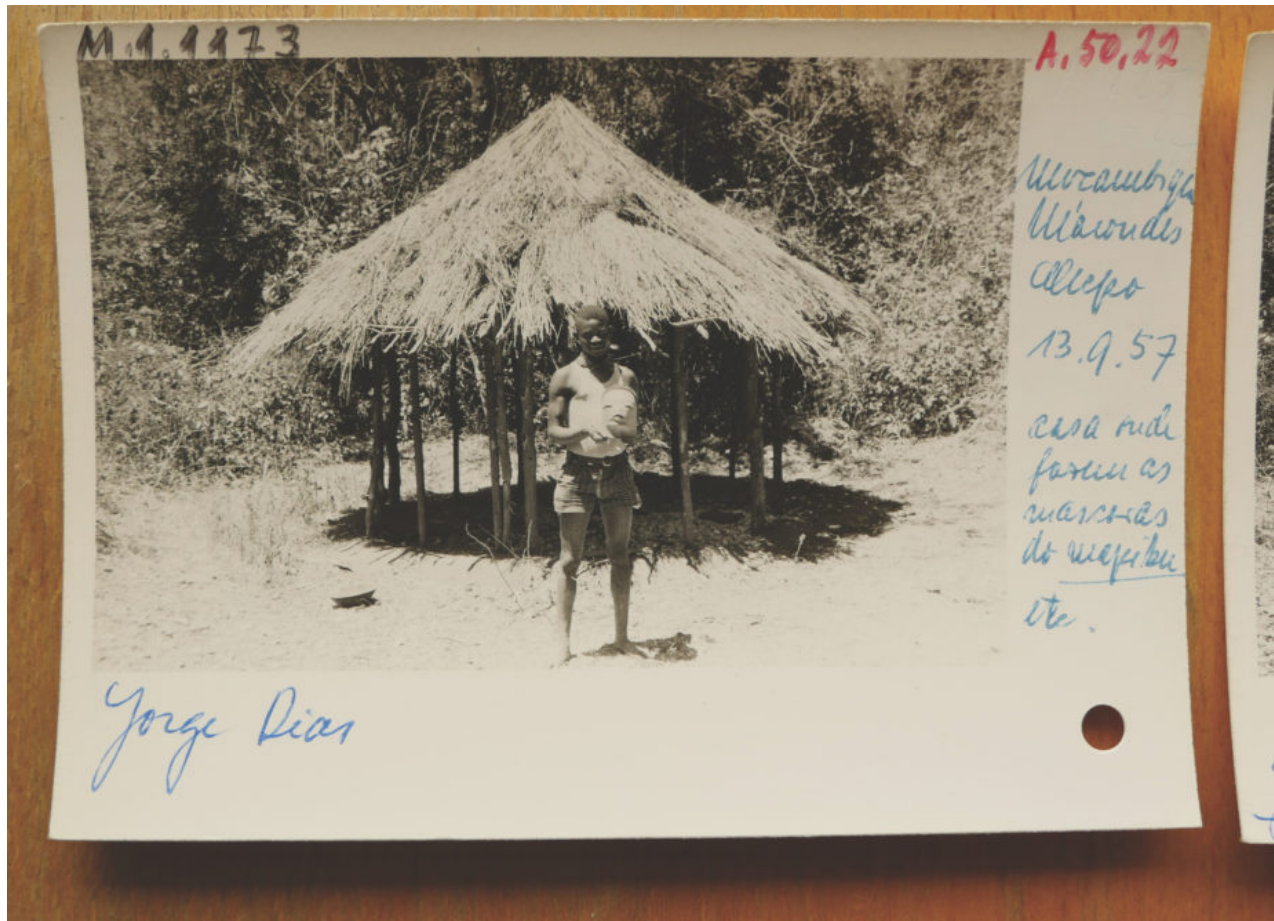 M.1.1173
A.50.22
Moçambique
Macondes
13.9.57
casa onde
fazem as
mascaras
do mapiko
etc.
Jorge Dias